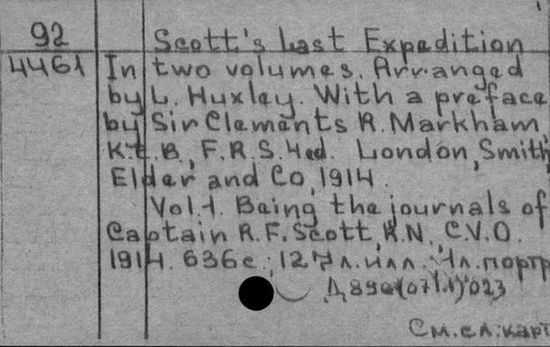 92 Scott's Last Expedition
4461 In two volumes. Arranged
by L. Huxley. With a preface
by Sir Clements R. Markham,
K.C.B., F.R.S. 4 ed. London, Smith
Elder and Co, 1914.
Vol.1. Being the journals of
Captain R.F. Scott, R.N., C.V.O.
1914. 636 с.; 127 л. илл. 1 л. портр
См. сл. карт